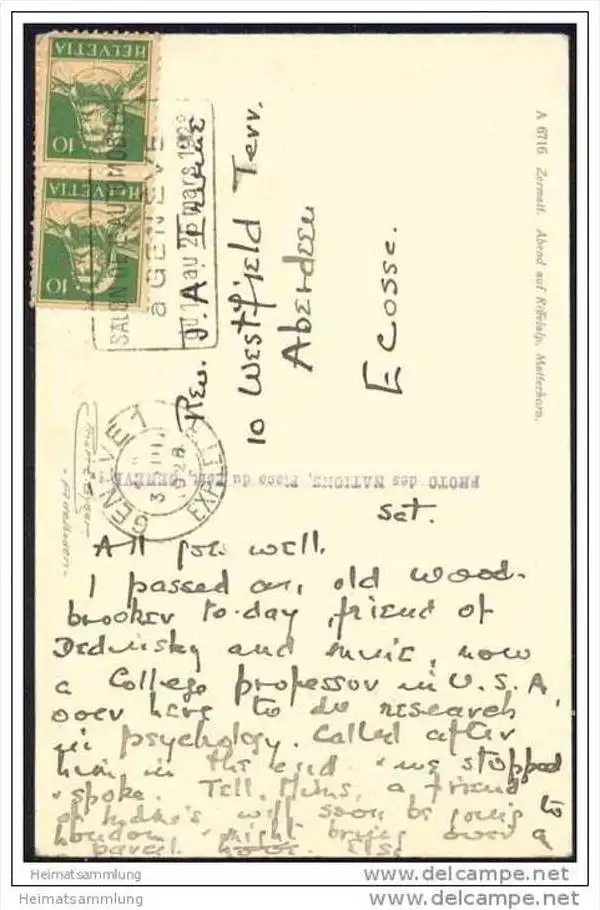 HELVETIA
10
HELVETIA
10
SALON DE L'AUTOMOBILE
à GENÈVE
du 16 au 25 mars 1928
GENÈVE 1
3 III
1928
EXP. LETT
Rev. J. A.
10 Westfield Terr.
Aberdeen
Ecosse.
A 6716 Zermatt. Abend auf Riffelalp, Matterhorn.
PHOTO des NATIONS, Place du GENÈVE
Sat.
All goes well.
I passed an old Wood-
brooker to-day, friend of
and music, now
a College professor in U.S.A,
over here to do research
in psychology. Called after
him in the end & we stopped
& spoke. Tell Mums, a friend
of will soon be going to
London & might bring over a
parcel
Heimatsammlung
Heimatsammlung
www.ansichtskarten-center.de
www.ansichtskarten-center.de